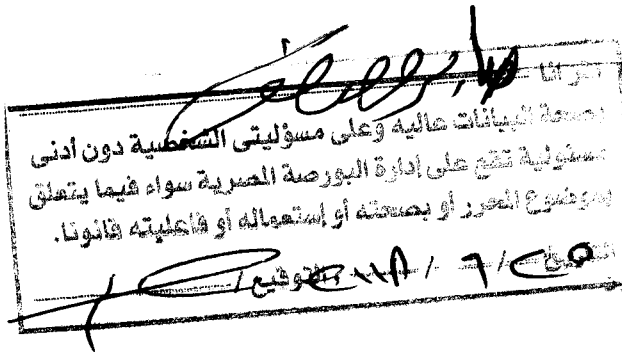 أقر أنا
بصحة البيانات عاليه وعلى مسؤليتى الشخصية دون أدنى
مسئولية تقع على إدارة البورصة المصرية سواء فيما يتعلق
بموضوع المحرر أو بصحته أو إستعماله أو فاعليته قانونا.
التاريخ ٢٥ / ٦ / ٢٠١٨ التوقيع /